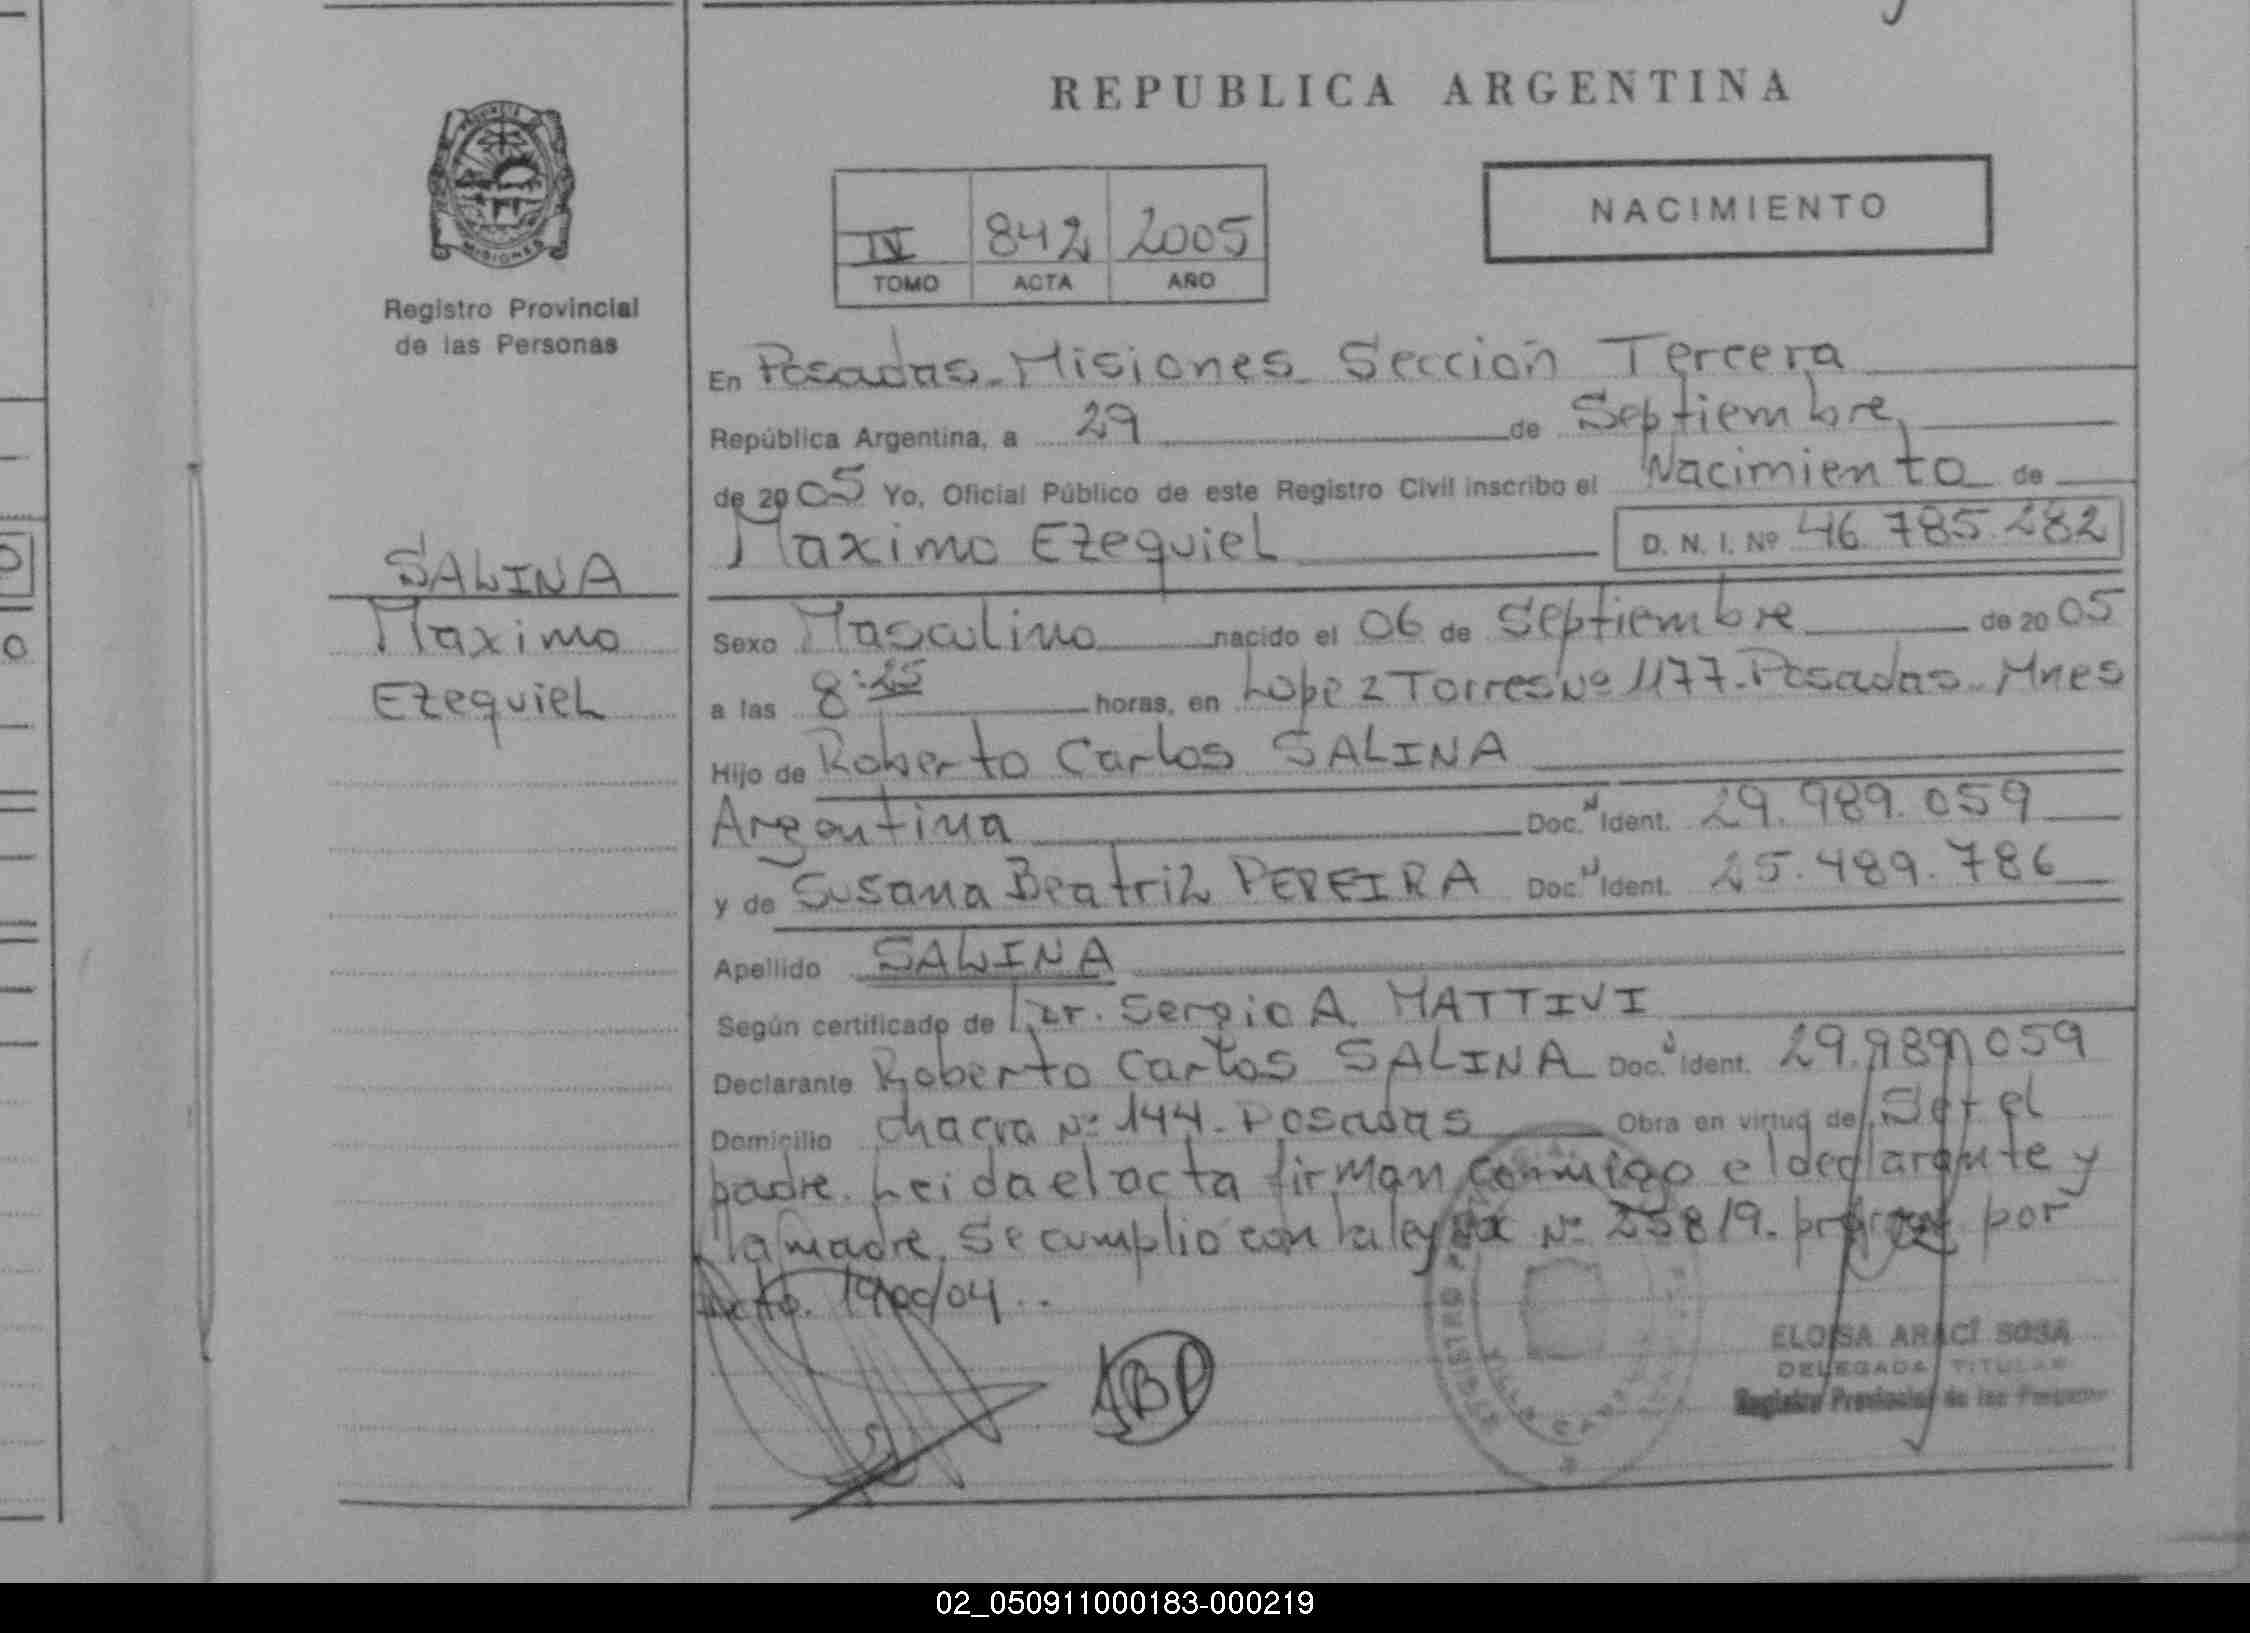 REPUBLICA ARGENTINA
PROVINCIA
MISIONES
Registro Provincial
de las Personas
NACIMIENTO
IV 842 2005
TOMO ACTA AÑO
En Posadas-Misiones Sección Tercera
República Argentina, a 29 de Septiembre
de 2005 Yo, Oficial Público de este Registro Civil inscribo el Nacimiento de
Maximo Ezequiel D. N. I. Nº 46.785.282
SALINA
Maximo
Ezequiel
Sexo Masculino nacido el 06 de Septiembre de 2005
a las 8:25 horas, en Lopez Torres Nº 1177-Posadas-Mnes
Hijo de Roberto Carlos SALINA
Argentina Doc. N Ident. 29.989.059
y de Susana Beatriz PEREIRA Doc. N Ident. 25.489.786
Apellido SALINA
Según certificado de Dr. Sergio A. MATTIVI
Declarante Roberto Carlos SALINA Doc. N Ident. 29.989.059
Domicilio chacra Nº 144-Posadas Obra en virtud de Ser el
padre. Leida el acta firman conmigo el declarante y
la madre. Se cumplio con la ley Nº 25819. por
1900/04..
ABP
ELOISA ARACÍ SOSA
DELEGADA TITULAR
Registro Provincial de las Personas
02_050911000183-000219